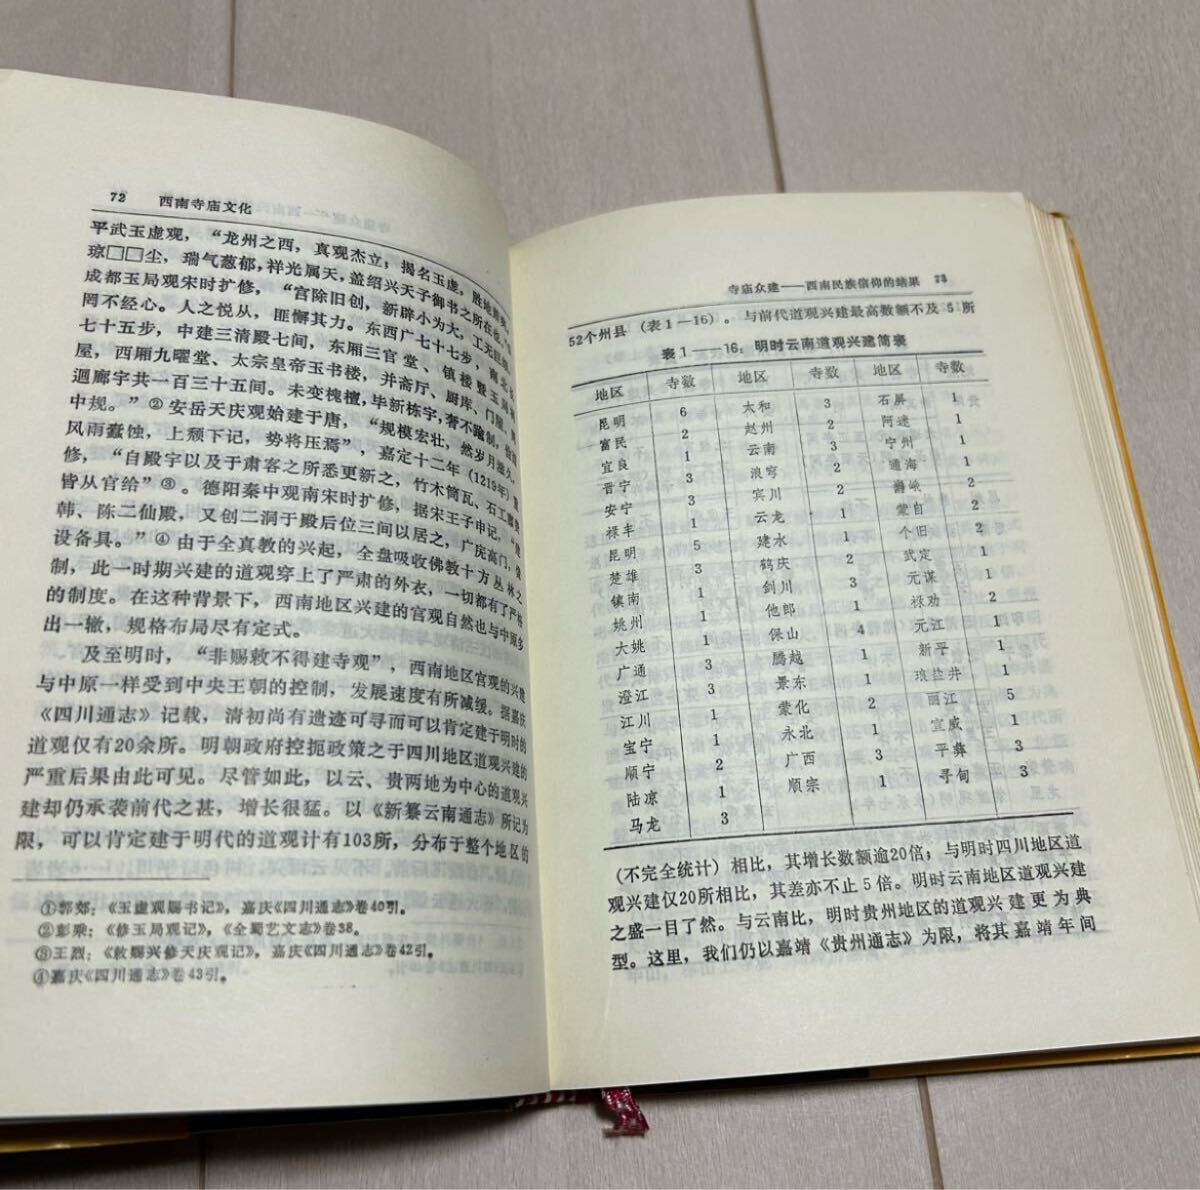 72 西南寺庙文化
平武玉虚观，“龙州之西，真观杰立；揭名玉虚，胜地
琼□□尘，瑞气葱郁，祥光属天，盖绍兴天子御书之所在也。”
成都玉局观宋时扩修，“宫除旧创，新辟小为大，工无
罔不经心。人之悦从，匪懈其力。东西广七十七步，南北
七十五步，中建三清殿七间，东厢三官堂、镇楼暨玉
屋，西厢九曜堂、太宗皇帝玉书楼，并斋厅、厨库、门屋、
迴廊宇共一百三十五间。未变槐檀，毕新栋宇，奢不踰制，
中规。”②安岳天庆观始建于唐，“规模宏壮，然岁月遂久，
风雨蠹蚀，上颓下记，势将压焉”，嘉定十二年（1219年）重
修，“自殿宇以及于肃客之所悉更新之，竹木筒瓦、石工
皆从官给”③。德阳秦中观南宋时扩修，据宋王子申记，“建
韩、陈二仙殿，又创二洞于殿后位三间以居之，广庑高门，
设备具。”④由于全真教的兴起，全盘吸收佛教十方丛林之
制，此一时期兴建的道观穿上了严肃的外衣，一切都有了严格
的制度。在这种背景下，西南地区兴建的宫观自然也与中原多
出一辙，规格布局尽有定式。
及至明时，“非赐敕不得建寺观”，西南地区宫观的兴建
与中原一样受到中央王朝的控制，发展速度有所减缓。据嘉庆
《四川通志》记载，清初尚有遗迹可寻而可以肯定建于明时的
道观仅有20余所。明朝政府控扼政策之于四川地区道观兴建的
严重后果由此可见。尽管如此，以云、贵两地为中心的道观兴
建却仍承袭前代之甚，增长很猛。以《新纂云南通志》所记为
限，可以肯定建于明代的道观计有103所，分布于整个地区的
①郭郊：《玉虚观赐书记》，嘉庆《四川通志》卷40引。
②彭乘：《修玉局观记》，《全蜀艺文志》卷38。
③王烈：《敕赐兴修天庆观记》，嘉庆《四川通志》卷42引。
④嘉庆《四川通志》卷43引。
寺庙众建——西南民族信仰的结果 73
52个州县（表1—16）。与前代道观兴建最高数额不及5所
表1——16：明时云南道观兴建简表
地区 寺数 地区 寺数 地区 寺数
昆明 6 太和 3 石屏 1
富民 2 赵州 2 阿迷 1
宜良 1 云南 3 宁州 1
晋宁 3 浪穹 2 通海 1
安宁 3 宾川 2 嶍峨 2
禄丰 1 云龙 1 蒙自 2
昆明 5 建水 1 个旧 2
楚雄 3 鹤庆 2 武定 1
镇南 1 剑川 3 元谋 2
姚州 1 他郎 1 禄劝 1
大姚 1 保山 4 元江 1
广通 3 腾越 1 新平 1
澄江 3 景东 1 琅盐井 1
江川 1 蒙化 2 丽江 5
宝宁 1 永北 1 宣威 1
顺宁 2 广西 3 平彝 3
陆凉 1 顺宗 1 寻甸 3
马龙 3
（不完全统计）相比，其增长数额逾20倍；与明时四川地区道
观兴建仅20所相比，其差亦不止5倍。明时云南地区道观兴建
之盛一目了然。与云南比，明时贵州地区的道观兴建更为典
型。这里，我们仍以嘉靖《贵州通志》为限，将其嘉靖年间